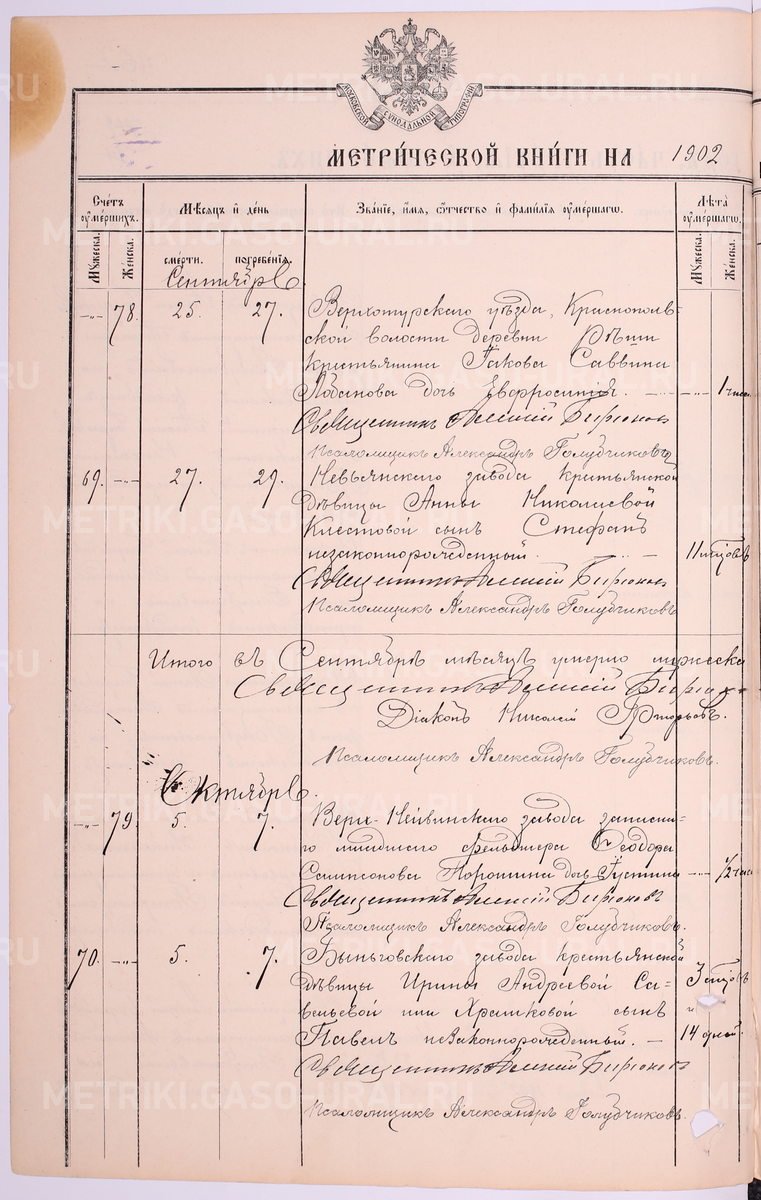 МОСКОВСКОЙ СУНОДАЛЬНОЙ ТИПОГРАФІИ
МЕТРИ́ЧЕСКОЙ КНИ́ГИ НА 1902
Счетъ оумершихъ. Мѣсяцъ и день Званіе, имя, отчество и фамилія оумершагѡ. Лѣта оумершагѡ.
Мужеска. Женска. смерти. погребенія. Мужеска. Женска.
Сентябрь.
-„- 78. 25. 27. Верхотурскаго уѣзда, Краснополь-
ской волости деревни Рѣши
крестьянина Іакова Саввина
Лобанова дочь Евфросинія. -„- 1 часъ
Священникъ Алексій Бирюковъ
Псаломщикъ Александръ Голубчиковъ
69. -„- 27. 29. Невьянскаго завода крестьянской
дѣвицы Анны Николаевой
Клестовой сынъ Стефанъ
незаконнорожденный. 11 мѣсяцовъ
Священникъ Алексій Бирюковъ
Псаломщикъ Александръ Голубчиковъ
Итого въ Сентябрѣ мѣсяцѣ умерло мужеска
Священникъ Алексій Бирюко-
Діаконъ Николай
Псаломщикъ Александръ Голубчиковъ.
Октябрь.
-„- 79. 5. 7. Верх-Нейвинскаго завода запасна-
го младшаго фельдшера Ѳеодора
Сампсонова Порошина дочь Іустина -„- 1/2 часа
Священникъ Алексій Бирюковъ
Псаломщикъ Александръ Голубчиковъ.
70. -„- 5. 7. Быньговскаго завода крестьянской
дѣвицы Ирины Андреевой Са- 3 мѣсяцовъ
вельевой или Храмковой сынъ и
Павелъ незаконнорожденный. 14 дней.
Священникъ Алексій Бирюковъ
Псаломщикъ Александръ Голубчиковъ.
METRIKI.GASO-URAL.RU